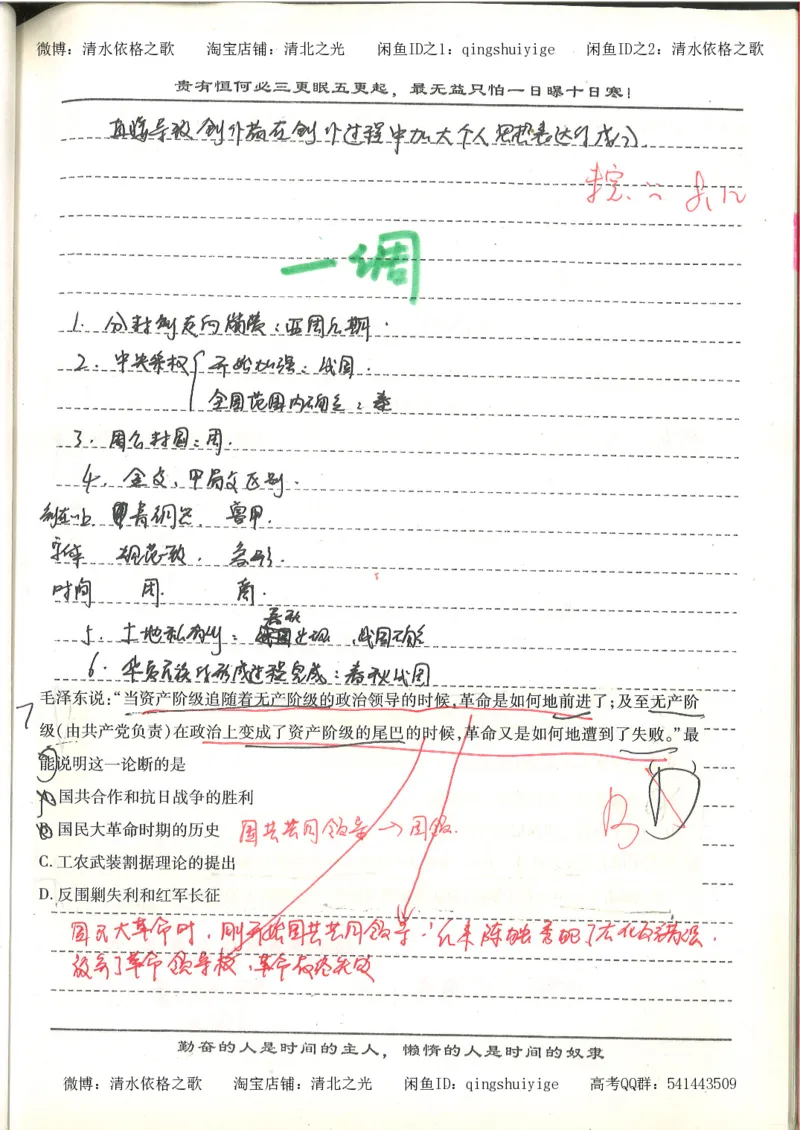 微博：清水依格之歌 淘宝店铺：清北之光 闲鱼ID之1：qingshuiyige 闲鱼ID之2：清水依格之歌
贵有恒何必三更眠五更起，最无益只怕一日曝十日寒！
导致创作者在创作过程中加大个人思想表达
一调
1. 分封制走向崩溃：西周后期.
2. 中央集权 开始加强：战国.
全国范围内确立：秦
3. 周公封国：周.
4. 金文、甲骨文区别.
青铜器. 兽甲.
字体 规范. 多形.
时间 周. 商.
春秋
5. 土地私有制： 出现，战国确立
6. 华夏民族形成过程完成：春秋战国
7
毛泽东说：“当资产阶级追随着无产阶级的政治领导的时候，革命是如何地前进了；及至无产阶
级（由共产党负责）在政治上变成了资产阶级的尾巴的时候，革命又是如何地遭到了失败。”最
能说明这一论断的是
A. 国共合作和抗日战争的胜利
B. 国民大革命时期的历史 国共共同领导→
B (D)
C. 工农武装割据理论的提出
D. 反围剿失利和红军长征
国民大革命时，刚开始国共共同领导，后来陈独秀犯了右倾错误，
放弃了革命领导权，革命最终失败
勤奋的人是时间的主人，懒惰的人是时间的奴隶
微博：清水依格之歌 淘宝店铺：清北之光 闲鱼ID：qingshuiyige 高考QQ群：541443509